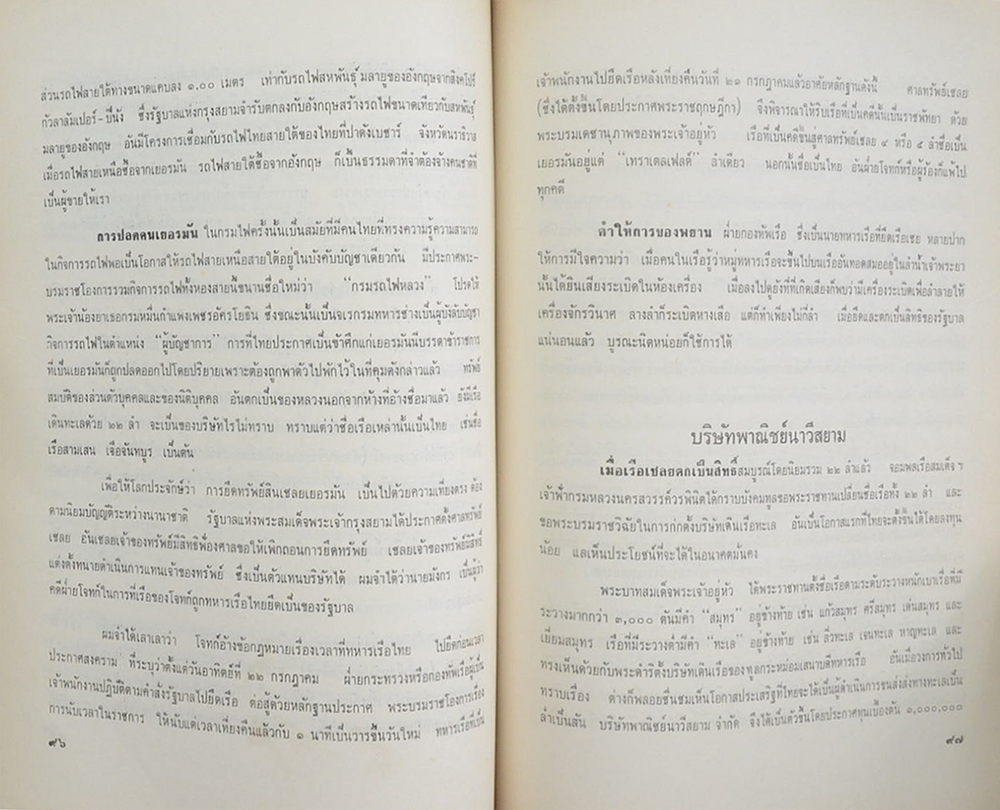 ส่วนรถไฟสายใต้ทางขนาดแคบลง ๑.๐๐ เมตร เท่ากับรถไฟสหพันธุ์ มลายูของอังกฤษจากสิงคโปร์
กัวลาลัมเปอร์-ปีนัง ซึ่งรัฐบาลแห่งกรุงสยามจำรับตกลงกับอังกฤษสร้างรถไฟขนาดเดียวกับสหพันธุ์
มลายูของอังกฤษ อันมีโครงการเชื่อมกับรถไฟไทยสายใต้ของไทยที่ปาดังเบซาร์ จังหวัดนราธิวาส
เมื่อรถไฟสายเหนือซื้อจากเยอรมัน รถไฟสายใต้ซื้อจากอังกฤษ ก็เป็นธรรมดาที่จำต้องจ้างคนชาติที่
เป็นผู้ขายให้เรา
การปลดคนเยอรมัน ในกรมไฟครั้งนั้นเป็นสมัยที่มีคนไทยที่ทรงความรู้ความสามารถ
ในกิจการรถไฟพอเป็นโอกาสให้รถไฟสายเหนือสายใต้อยู่ในบังคับบัญชาเดียวกัน มีประกาศพระ-
บรมราชโองการรวมกิจการรถไฟทั้งสองสายนี้ขนานชื่อใหม่ว่า "กรมรถไฟหลวง" โปรดให้
พระเจ้าน้องยาเธอกรมหมื่นกำแพงเพชรอัครโยธิน ซึ่งขณะนั้นเป็นจเรกรมทหารช่างเป็นผู้บังคับบัญชา
กิจการรถไฟในตำแหน่ง "ผู้บัญชาการ" การที่ไทยประกาศเป็นข้าศึกแก่เยอรมันนี้บรรดาข้าราชการ
ที่เป็นเยอรมันก็ถูกปลดออกไปโดยปริยายเพราะต้องถูกพาตัวไปพักไว้ในที่คุมดังกล่าวแล้ว ทรัพย์
สมบัติของส่วนตัวบุคคลและของนิติบุคคล อันตกเป็นของหลวงนอกจากห้างที่อ้างชื่อมาแล้ว ยังมีเรือ
เดินทะเลด้วย ๒๒ ลำ จะเป็นของบริษัทไรไม่ทราบ ทราบแต่ว่าชื่อเรือเหล่านั้นเป็นไทย เช่นชื่อ
เรือสามเสน เจือจันทบูร เป็นต้น
เพื่อให้โลกประจักษ์ว่า การยึดทรัพย์สินเชลยเยอรมัน เป็นไปด้วยความเที่ยงตรง ต้อง
ตามนิยมบัญญัติระหว่างนานาชาติ รัฐบาลแห่งพระสมเด็จพระเจ้ากรุงสยามได้ประกาศตั้งศาลทรัพย์
เชลย อันเชลยเจ้าของทรัพย์มีสิทธิฟ้องศาลขอให้เพิกถอนการยึดทรัพย์ เชลยเจ้าของทรัพย์มีสิทธิ
แต่งตั้งทนายดำเนินการแทนเจ้าของทรัพย์ ซึ่งเป็นตัวแทนบริษัทได้ ผมจำได้ว่านายมังกร เป็นผู้ว่า
คดีฝ่ายโจทก์ในการที่เรือของโจทก์ถูกทหารเรือไทยยึดเป็นของรัฐบาล
ผมจำได้เลาเลาว่า โจทก์อ้างข้อกฎหมายเรื่องเวลาที่ทหารเรือไทย ไปยึดก่อนเวลา
ประกาศสงคราม ที่ระบุว่าตั้งแต่วันอาทิตย์ที่ ๒๒ กรกฎาคม ฝ่ายกระทรวงหรือกองทัพเรือผู้เป็น
เจ้าพนักงานปฏิบัติตามคำสั่งรัฐบาลไปยึดเรือ ต่อสู้ด้วยหลักฐานประกาศ พระบรมราชโองการเรื่อง
การนับเวลาในราชการ ให้นับแต่เวลาเที่ยงคืนแล้วกับ ๑ นาทีเป็นวารขึ้นวันใหม่ ทหารเรือที่เป็น
๙๖
เจ้าพนักงานไปยึดเรือหลังเที่ยงคืนวันที่ ๒๑ กรกฎาคมแล้วอาศัยหลักฐานดังนี้ ศาลทรัพย์เชลย
(ซึ่งได้ตั้งขึ้นโดยประกาศพระราชกฤษฎีกา) จึงพิจารณาให้ริบเรือที่เป็นคดีนั้นเป็นราชพัทยา ด้วย
พระบรมเดชานุภาพของพระเจ้าอยู่หัว เรือที่เป็นคดีขึ้นสู่ศาลทรัพย์เชลย ๔ หรือ ๕ ลำชื่อเป็น
เยอรมันอยู่แต่ "เทราเตลเฟลด์" ลำเดียว นอกนั้นชื่อเป็นไทย อันฝ่ายโจทก์หรือผู้ร้องก็แพ้ไป
ทุกคดี
คำให้การของพยาน ฝ่ายกองทัพเรือ ซึ่งเป็นนายทหารเรือที่ยึดเรือเชย หลายปาก
ให้การมีใจความว่า เมื่อคนในเรือรู้ว่าหมู่ทหารเรือจะขึ้นไปบนเรืออันทอดสมออยู่ในลำน้ำเจ้าพระยา
นั้นได้ยินเสียงระเบิดในห้องเครื่อง เมื่อลงไปดูยังที่ที่เกิดเสียงก็พบว่ามีเครื่องระเบิดเพื่อทำลายให้
เครื่องจักรวินาศ ลางลำก็ระเบิดหางเสือ แต่ก็ทำเพียงไม่กี่ลำ เมื่อยึดและตกเป็นสิทธิของรัฐบาล
แน่นอนแล้ว บูรณะนิดหน่อยก็ใช้การได้
บริษัทพาณิชย์นาวีสยาม
เมื่อเรือเชลยตกเป็นสิทธิ์สมบูรณ์โดยนิยมรวม ๒๒ ลำแล้ว จอมพลเรือสมเด็จ ฯ
เจ้าฟ้ากรมหลวงนครสวรรค์วรพินิตได้กราบบังคมทูลขอพระราชทานเปลี่ยนชื่อเรือทั้ง ๒๒ ลำ และ
ขอพระบรมราชวินิจฉัยในการก่อตั้งบริษัทเดินเรือทะเล อันเป็นโอกาสแรกที่ไทยจะตั้งขึ้นได้โดยลงทุน
น้อย แลเห็นประโยชน์ที่จะได้ในอนาคตมั่นคง
พระบาทสมเด็จพระเจ้าอยู่หัว ได้พระราชทานตั้งชื่อเรือตามระดับระวางหนักเบาเรือที่มี
ระวางมากกว่า ๓,๐๐๐ ตันมีคำ "สมุทร" อยู่ข้างท้าย เช่น แก้วสมุทร ศรีสมุทร เด่นสมุทร และ
เยี่ยมสมุทร เรือที่มีระวางต่ำมีคำ "ทะเล" อยู่ข้างท้าย เช่น ลิ่วทะเล เจนทะเล หาญทะเล และ
ทรงเห็นด้วยกับพระดำริตั้งบริษัทเดินเรือของทูลกระหม่อมเสนาบดีทหารเรือ อันเมื่อวงการทั่วไป
ทราบเรื่อง ต่างก็พลอยชื่นชมเห็นโอกาสประเสริฐที่ไทยจะได้เป็นผู้ดำเนินการขนส่งส่งทางทะเลเป็น
ล่ำเป็นสัน บริษัทพาณิชย์นาวีสยาม จำกัด จึงได้เป็นตัวขึ้นโดยประกาศทุนเบื้องต้น ๑,๐๐๐,๐๐๐
๙๗